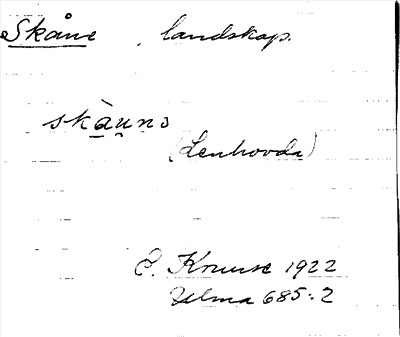 Skåne , landskap.
skàuno
(Lenhovda)
C. Knuse 1922
Ulma 685:2